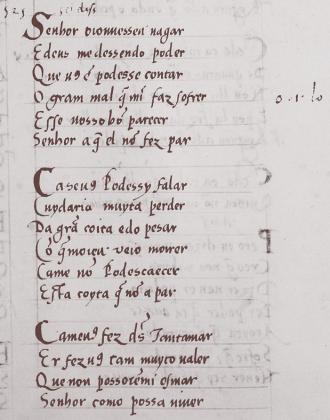 Senhor oiounessen nagar
Edeus me dessendo poder
Que uꝯ è podesse contar
O gram mal q̃ mi faz sofrer
Esse uosso bõ parecer
Senhor a q̃ el nõ fez par
Ca seuꝯ Podessy falar
Cuydaria muyta perder
Da grã coita e do pesar
Cõ q̃ moiro ueio morrer
Ca me nõ Podescaecer
Esta coyta q̃ nõ a par
Ca me uꝯ fez ds̃ Tantamar
Er fez uꝯ tam muyto ualer
Que non posso remi osmar
Senhor como possa uiuer